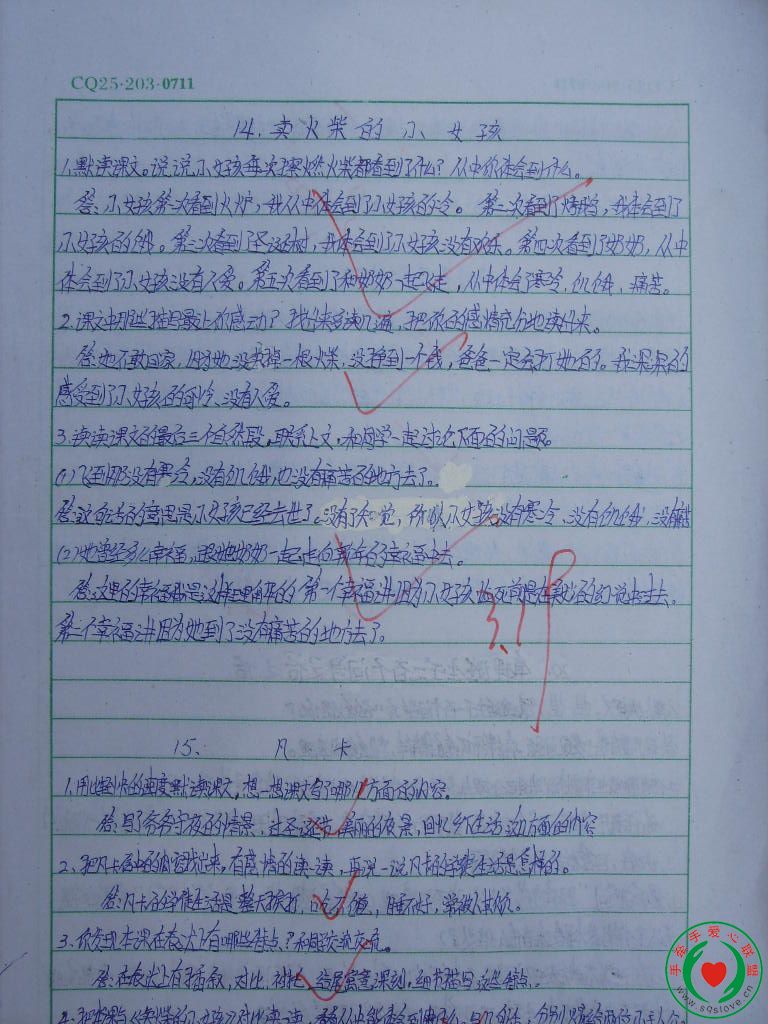 CQ25·203·0711
14. 卖火柴的小女孩
1.默读课文。说说小女孩每次擦燃火柴都看到了什么？从中你体会到什么。
答：小女孩第一次看到火炉，我从中体会到了小女孩的冷。第二次看到了烤鹅，我体会到了
小女孩的饿。第三次看到了圣诞树，我体会到了小女孩没有欢乐。第四次看到了奶奶，从中
体会到了小女孩没有人爱。第五次看到了和奶奶一起飞走，从中体会了寒冷，饥饿，痛苦。
2.课文中哪些语句最让你感动？找出来多读几遍，把你的感情充分地读出来。
答：她不敢回家，因为她没卖掉一根火柴，没挣到一个钱，爸爸一定会打她的。我深深的
感受到了小女孩的寒冷、没有人爱。
3.读读课文的最后三个自然段，联系上文，和同学一起讨论下面的问题。
(1)飞到那没有寒冷，没有饥饿，也没有痛苦的地方去了。
答：这句话的意思是小女孩已经去世了。没有了知觉，所以小女孩没有寒冷、没有饥饿，没有痛苦
(2)她曾经多么幸福，跟她奶奶一起走向新年的幸福中去。
答：这里的幸福我是这样理解的 第一个幸福讲因为小女孩临死前是在美妙的幻觉中过去。
第二个幸福讲因为她到了没有痛苦的地方去了。
3.19
15. 凡卡
1.用比较快的速度默读课文，想一想课文写了哪几方面的内容。
答：写了爷爷守夜的情景，过圣诞节，美丽的夜景，回忆乡下生活这几方面的内容
2、把凡卡写的信的内容找出来，有感情的读一读，再说一说凡卡的学徒生活是怎样的。
答：凡卡的学徒生活是整天挨打，吃不饱，睡不好，常被人欺负。
3、你发现本课在表达上有哪些特点？和同学交流交流。
答：在表达上有插叙，对比，衬托，结尾寓意深刻，细节描写这些特点。
手牵手爱心联盟
www.sqslove.cn